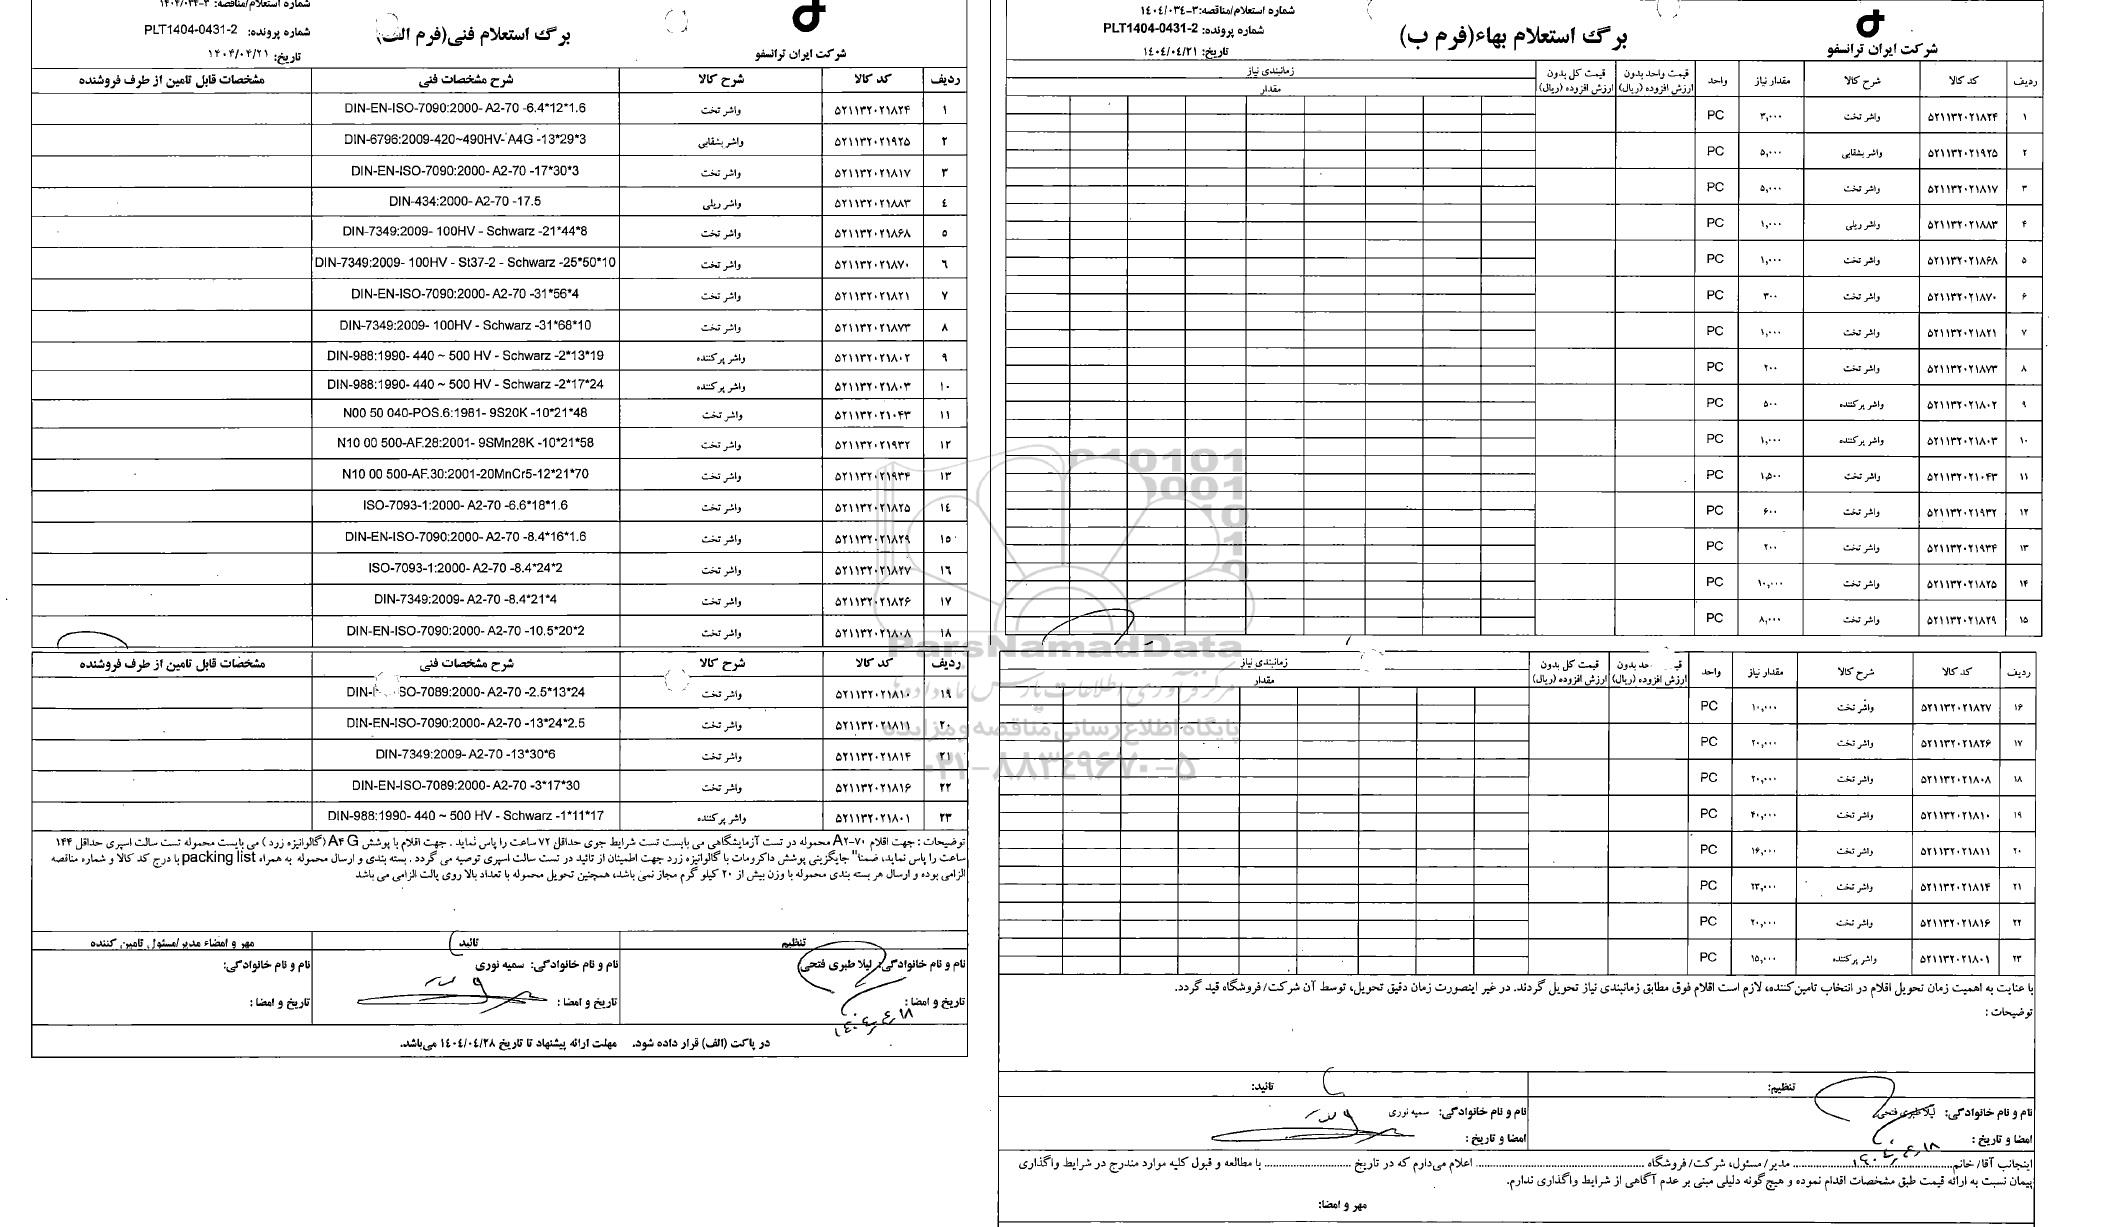 شماره استعلام/مناقصه:۳-۱٤۰٤/۰۳٤
شماره پرونده: PLT1404-0431-2
تاریخ: ۱٤۰٤/۰٤/۲۱
برگ استعلام بهاء(فرم ب)
شرکت ایران ترانسفو
ردیف کد کالا شرح کالا مقدار نیاز واحد قیمت واحد بدون ارزش افزوده (ریال) قیمت کل بدون ارزش افزوده (ریال) زمانبندی نیاز
مقدار
۱ ۵۲۱۱۳۲۰۲۱۸۲۴ واشر تخت ۳,۰۰۰ PC
۲ ۵۲۱۱۳۲۰۲۱۹۲۵ واشر بشقابی ۵,۰۰۰ PC
۳ ۵۲۱۱۳۲۰۲۱۸۱۷ واشر تخت ۵,۰۰۰ PC
۴ ۵۲۱۱۳۲۰۲۱۸۸۳ واشر ریلی ۱,۰۰۰ PC
۵ ۵۲۱۱۳۲۰۲۱۸۶۸ واشر تخت ۱,۰۰۰ PC
۶ ۵۲۱۱۳۲۰۲۱۸۷۰ واشر تخت ۳۰۰ PC
۷ ۵۲۱۱۳۲۰۲۱۸۲۱ واشر تخت ۱,۰۰۰ PC
۸ ۵۲۱۱۳۲۰۲۱۸۷۳ واشر تخت ۲۰۰ PC
۹ ۵۲۱۱۳۲۰۲۱۸۰۲ واشر پرکننده ۵۰۰ PC
۱۰ ۵۲۱۱۳۲۰۲۱۸۰۳ واشر پرکننده ۱,۰۰۰ PC
۱۱ ۵۲۱۱۳۲۰۲۱۰۴۳ واشر تخت ۱,۵۰۰ PC
۱۲ ۵۲۱۱۳۲۰۲۱۹۳۲ واشر تخت ۶۰۰ PC
۱۳ ۵۲۱۱۳۲۰۲۱۹۳۴ واشر تخت ۲۰۰ PC
۱۴ ۵۲۱۱۳۲۰۲۱۸۲۵ واشر تخت ۱۰,۰۰۰ PC
۱۵ ۵۲۱۱۳۲۰۲۱۸۲۹ واشر تخت ۸,۰۰۰ PC
ردیف کد کالا شرح کالا مقدار نیاز واحد ارزش افزوده (ریال) قیمت کل بدون ارزش افزوده (ریال) زمانبندی نیاز
مقدار
۱۶ ۵۲۱۱۳۲۰۲۱۸۲۷ واشر تخت ۱۰,۰۰۰ PC
۱۷ ۵۲۱۱۳۲۰۲۱۸۲۶ واشر تخت ۲۰,۰۰۰ PC
۱۸ ۵۲۱۱۳۲۰۲۱۸۰۸ واشر تخت ۲۰,۰۰۰ PC
۱۹ ۵۲۱۱۳۲۰۲۱۸۱۰ واشر تخت ۴۰,۰۰۰ PC
۲۰ ۵۲۱۱۳۲۰۲۱۸۱۱ واشر تخت ۱۶,۰۰۰ PC
۲۱ ۵۲۱۱۳۲۰۲۱۸۱۴ واشر تخت ۲۳,۰۰۰ PC
۲۲ ۵۲۱۱۳۲۰۲۱۸۱۶ واشر تخت ۲۰,۰۰۰ PC
۲۳ ۵۲۱۱۳۲۰۲۱۸۰۱ واشر پرکننده ۱۵,۰۰۰ PC
با عنایت به اهمیت زمان تحویل اقلام در انتخاب تامین‌کننده، لازم است اقلام فوق مطابق زمانبندی نیاز تحویل گردند. در غیر اینصورت زمان دقیق تحویل، توسط آن شرکت/ فروشگاه قید گردد.
توضیحات :
تنظیم: تائید:
نام و نام خانوادگی: لیلا طبری فتحی نام و نام خانوادگی: سمیه نوری
امضا و تاریخ : امضا و تاریخ :
۱۴۰۴,۴,۱۸
اینجانب آقا/ خانم........ مدیر/ مسئول، شرکت/ فروشگاه ........ اعلام می‌دارم که در تاریخ ........ با مطالعه و قبول کلیه موارد مندرج در شرایط واگذاری
پیمان نسبت به ارائه قیمت طبق مشخصات اقدام نموده و هیچ گونه دلیلی مبنی بر عدم آگاهی از شرایط واگذاری ندارم.
مهر و امضا:
شماره استعلام/مناقصه: ۳-۱۴۰۴/۰۳۴
شماره پرونده: PLT1404-0431-2
تاریخ: ۱۴۰۴/۰۴/۲۱
برگ استعلام فنی(فرم الف)
شرکت ایران ترانسفو
ردیف کد کالا شرح کالا شرح مشخصات فنی مشخصات قابل تامین از طرف فروشنده
۱ ۵۲۱۱۳۲۰۲۱۸۲۴ واشر تخت DIN-EN-ISO-7090:2000- A2-70 -6.4*12*1.6
۲ ۵۲۱۱۳۲۰۲۱۹۲۵ واشر بشقابی DIN-6796:2009-420~490HV- A4G -13*29*3
۳ ۵۲۱۱۳۲۰۲۱۸۱۷ واشر تخت DIN-EN-ISO-7090:2000- A2-70 -17*30*3
٤ ۵۲۱۱۳۲۰۲۱۸۸۳ واشر ریلی DIN-434:2000- A2-70 -17.5
۵ ۵۲۱۱۳۲۰۲۱۸۶۸ واشر تخت DIN-7349:2009- 100HV - Schwarz -21*44*8
٦ ۵۲۱۱۳۲۰۲۱۸۷۰ واشر تخت DIN-7349:2009- 100HV - St37-2 - Schwarz -25*50*10
۷ ۵۲۱۱۳۲۰۲۱۸۲۱ واشر تخت DIN-EN-ISO-7090:2000- A2-70 -31*56*4
۸ ۵۲۱۱۳۲۰۲۱۸۷۳ واشر تخت DIN-7349:2009- 100HV - Schwarz -31*68*10
۹ ۵۲۱۱۳۲۰۲۱۸۰۲ واشر پرکننده DIN-988:1990- 440 ~ 500 HV - Schwarz -2*13*19
۱۰ ۵۲۱۱۳۲۰۲۱۸۰۳ واشر پرکننده DIN-988:1990- 440 ~ 500 HV - Schwarz -2*17*24
۱۱ ۵۲۱۱۳۲۰۲۱۰۴۳ واشر تخت N00 50 040-POS.6:1981- 9S20K -10*21*48
۱۲ ۵۲۱۱۳۲۰۲۱۹۳۲ واشر تخت N10 00 500-AF.28:2001- 9SMn28K -10*21*58
۱۳ ۵۲۱۱۳۲۰۲۱۹۳۴ واشر تخت N10 00 500-AF.30:2001-20MnCr5-12*21*70
۱٤ ۵۲۱۱۳۲۰۲۱۸۲۵ واشر تخت ISO-7093-1:2000- A2-70 -6.6*18*1.6
۱۵ ۵۲۱۱۳۲۰۲۱۸۲۹ واشر تخت DIN-EN-ISO-7090:2000- A2-70 -8.4*16*1.6
۱٦ ۵۲۱۱۳۲۰۲۱۸۲۷ واشر تخت ISO-7093-1:2000- A2-70 -8.4*24*2
۱۷ ۵۲۱۱۳۲۰۲۱۸۲۶ واشر تخت DIN-7349:2009- A2-70 -8.4*21*4
۱۸ ۵۲۱۱۳۲۰۲۱۸۰۸ واشر تخت DIN-EN-ISO-7090:2000- A2-70 -10.5*20*2
ردیف کد کالا شرح کالا شرح مشخصات فنی مشخصات قابل تامین از طرف فروشنده
۱۹ ۵۲۱۱۳۲۰۲۱۸۱۰ واشر تخت DIN- SO-7089:2000- A2-70 -2.5*13*24
۲۰ ۵۲۱۱۳۲۰۲۱۸۱۱ واشر تخت DIN-EN-ISO-7090:2000- A2-70 -13*24*2.5
۲۱ ۵۲۱۱۳۲۰۲۱۸۱۴ واشر تخت DIN-7349:2009- A2-70 -13*30*6
۲۲ ۵۲۱۱۳۲۰۲۱۸۱۶ واشر تخت DIN-EN-ISO-7089:2000- A2-70 -3*17*30
۲۳ ۵۲۱۱۳۲۰۲۱۸۰۱ واشر پرکننده DIN-988:1990- 440 ~ 500 HV - Schwarz -1*11*17
توضیحات : جهت اقلام A۲-۷۰ محموله در تست آزمایشگاهی می بایست تست شرایط جوی حداقل ۷۲ ساعت را پاس نماید . جهت اقلام با پوشش A۴ G (گالوانیزه زرد ) می بایست محموله تست سالت اسپری حداقل ۱۴۴
ساعت را پاس نماید، ضمنا" جایگزینی پوشش داکرومات با گالوانیزه زرد جهت اطمینان از تائید در تست سالت اسپری توصیه می گردد . بسته بندی و ارسال محموله به همراه packing list با درج کد کالا و شماره مناقصه
الزامی بوده و ارسال هر بسته بندی محموله با وزن بیش از ۲۰ کیلو گرم مجاز نمی باشد، همچنین تحویل محموله با تعداد بالا روی پالت الزامی می باشد
تنظیم تائید مهر و امضاء مدیر/مسئول تامین کننده
نام و نام خانوادگی: لیلا طبری فتحی نام و نام خانوادگی: سمیه نوری نام و نام خانوادگی:
تاریخ و امضا : تاریخ و امضا : تاریخ و امضا :
۱۴۰۴,۴,۱۸
در پاکت (الف) قرار داده شود. مهلت ارائه پیشنهاد تا تاریخ ۱٤۰٤/۰٤/۲۸ می‌باشد.
ParsNamadData
مرکز فرآوری اطلاعات پارس نماد داده ها
پایگاه اطلاع رسانی مناقصه و مزایده
۰۲۱-۸۸۳۴۹۶۷۰-۵